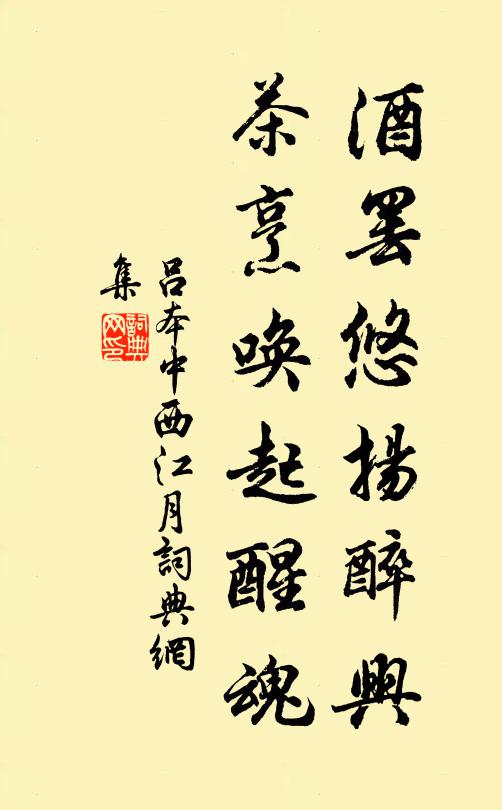 酒罢悠揚醉興
茶烹唤起醒魂
吕本中西江月詞典網
集
詞典
网印